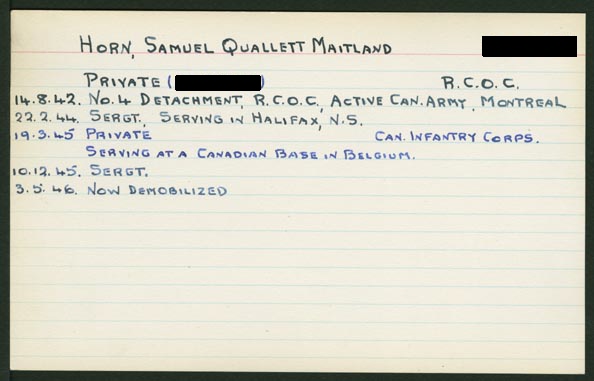 HORN, SAMUEL QUALLETT MAITLAND
PRIVATE ( ) R.C.O.C.
14.8.42. NO. 4 DETACHMENT, R.C.O.C., ACTIVE CAN. ARMY, MONTREAL
22.2.44. SERGT., SERVING IN HALIFAX, N.S.
19.3.45 PRIVATE CAN. INFANTRY CORPS.
SERVING AT A CANADIAN BASE IN BELGIUM.
10.12.45. SERGT.
3.5.46. NOW DEMOBILIZED